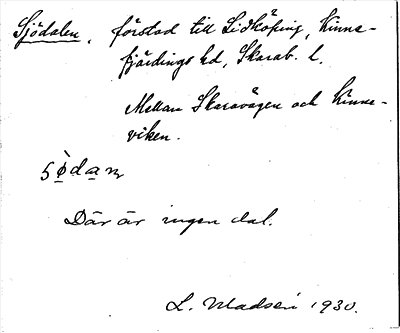 Sjödalen, förstad till Lidköping, Kinne-
fjärdings hd, Skarab. l.
Mellan Skaravägen och Kinne-
viken.
Där är ingen dal.
L. Madsén 1930.